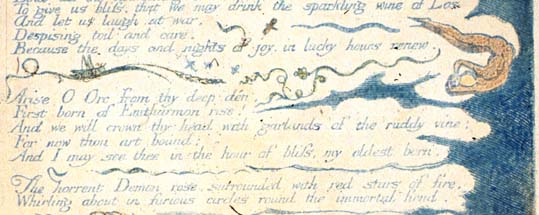 To give us bliss, that we may drink the sparkling wine of Los
And let us laugh at war,
Despising toil and care,
Because the days and nights of joy, in lucky hours renew.
Arise O Orc from thy deep den,
First born of Enitharmon rise!
And we will crown thy head with garlands of the ruddy vine;
For now thou art bound;
And I may see thee in the hour of bliss, my eldest born.
The horrent Demon rose, surrounded with red stars of fire,
Whirling about in furious circles round the immortal fiend.